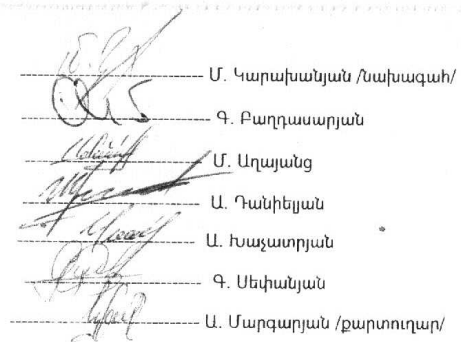 Մ. Կարախանյան /նախագահ/
Գ. Բաղդասարյան
Մ. Աղայանց
Ա. Դանիելյան
Ա. Խաչատրյան
Գ. Սեփանյան
Ա. Մարգարյան /քարտուղար/